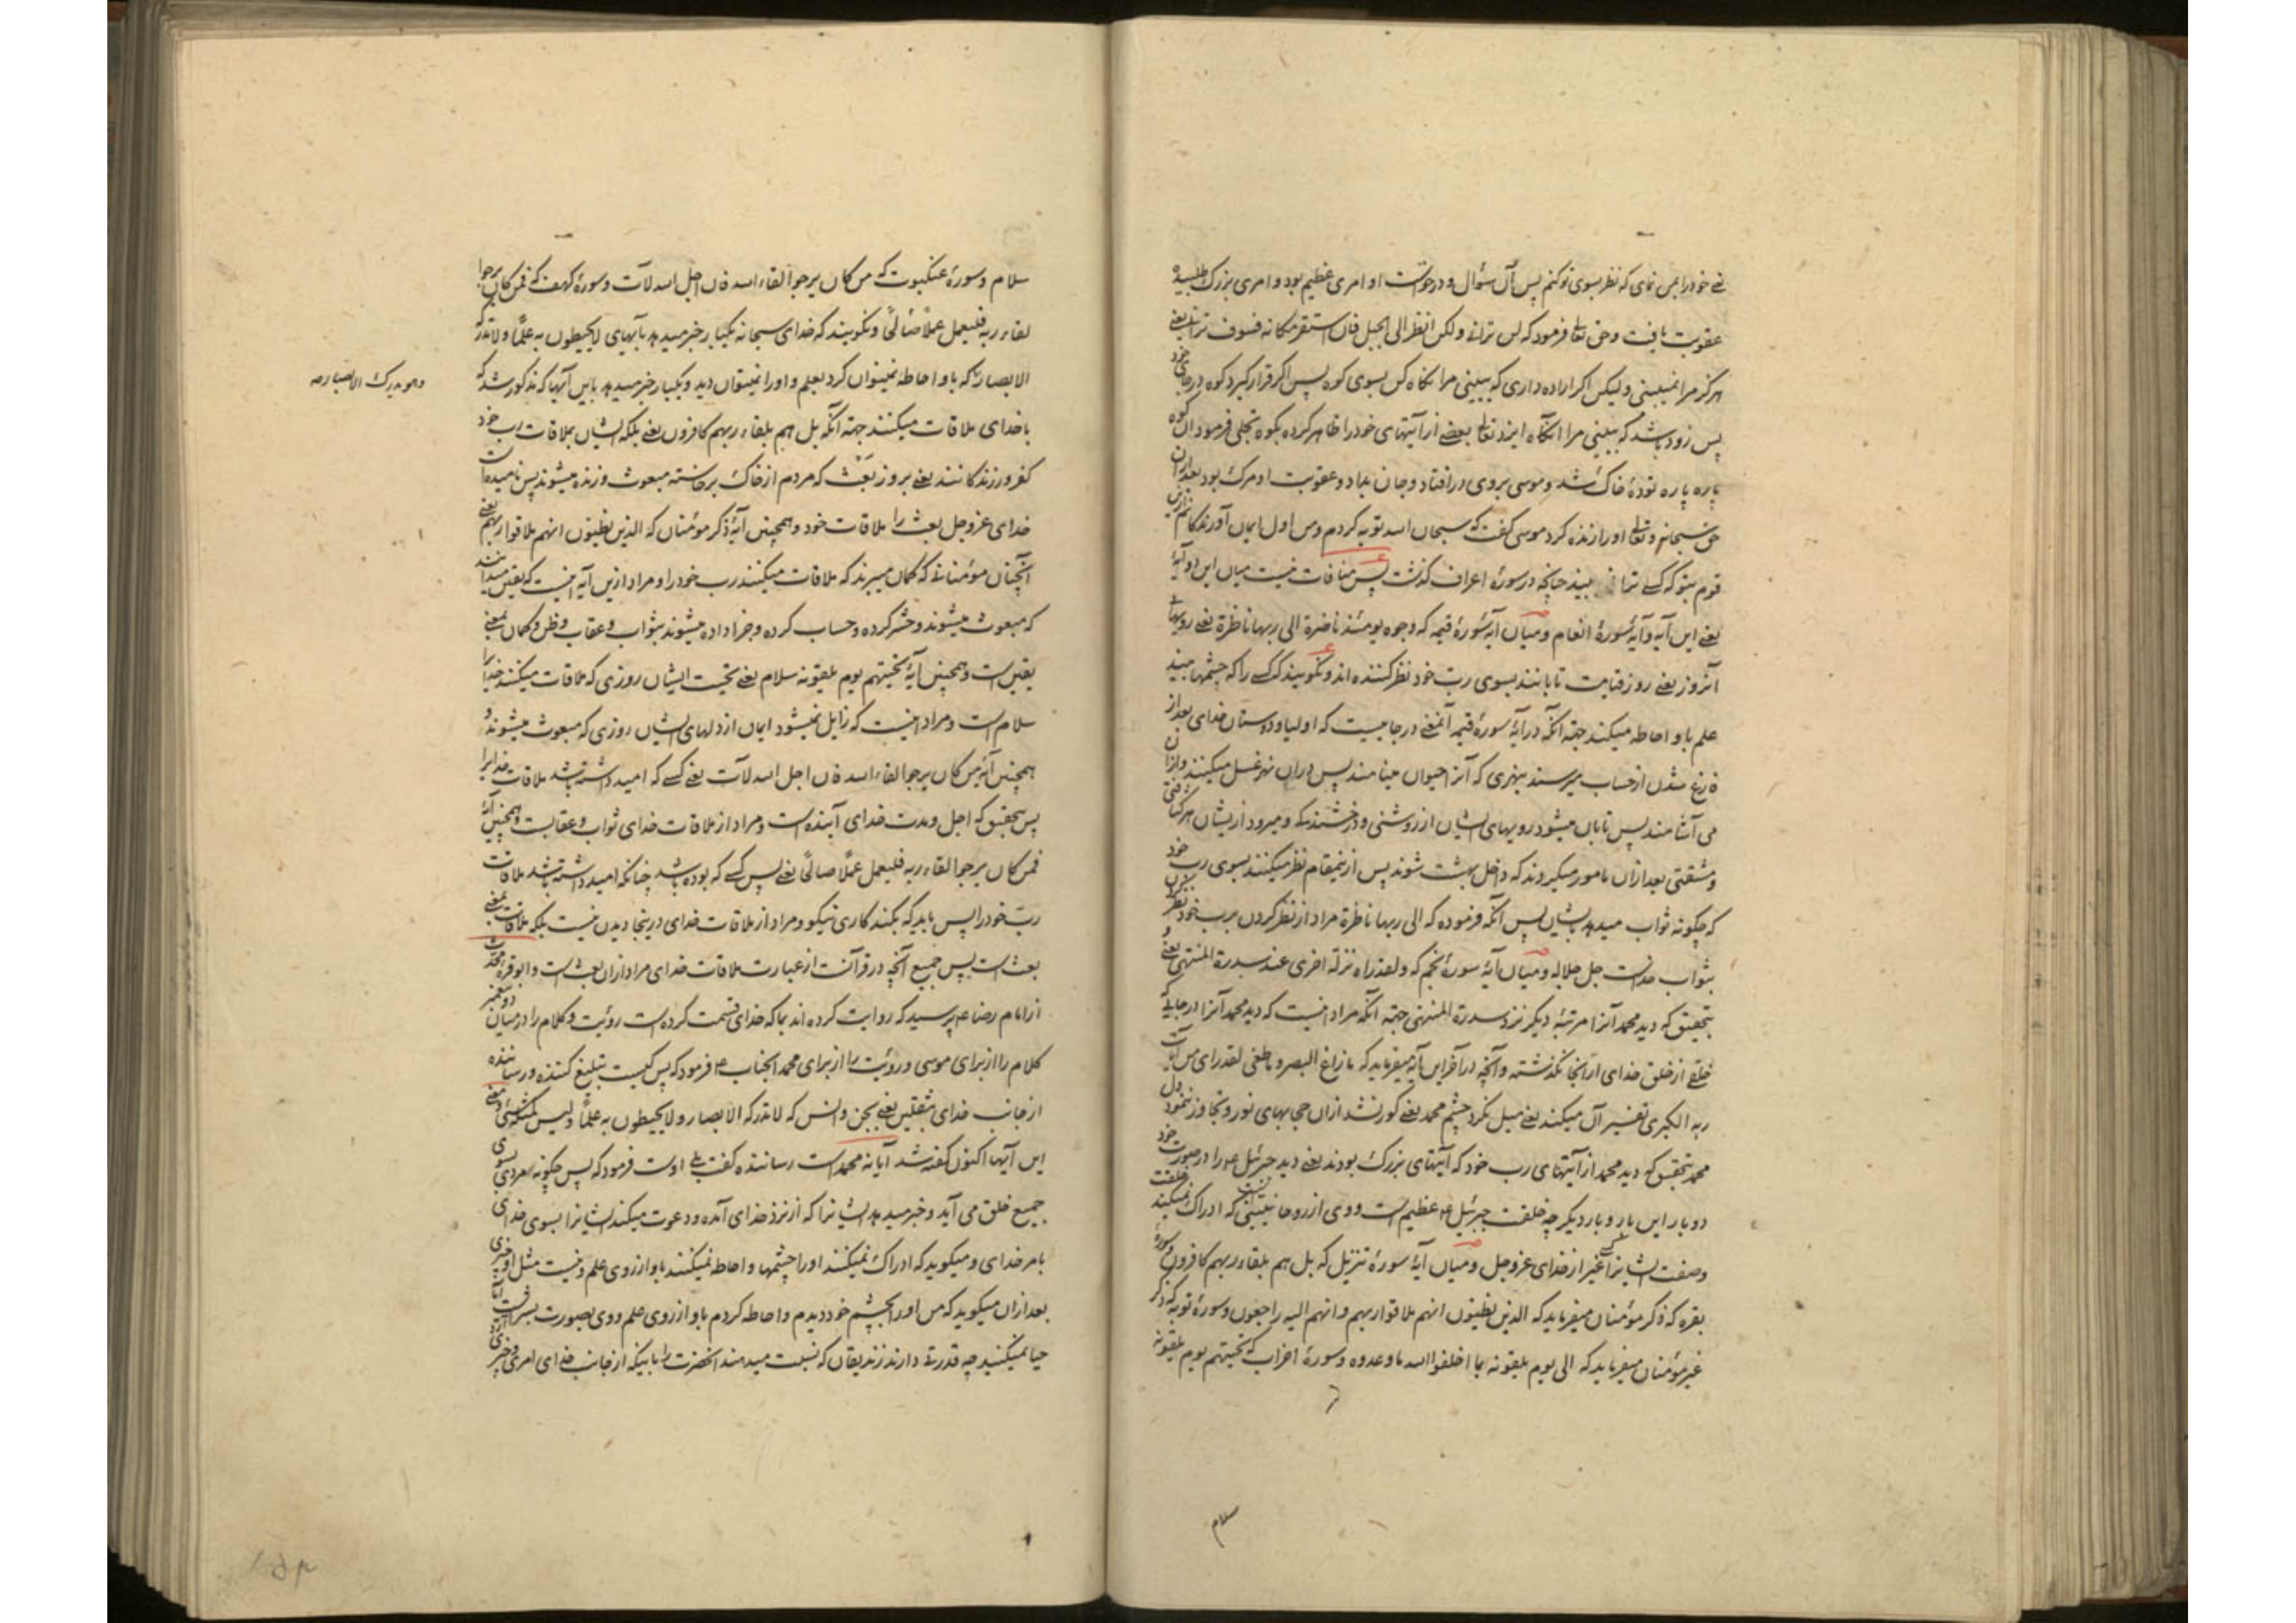 نی خود را بمن نمای که نظر بسوی تو کنم پس آن سؤال و درخواست او امری عظیم بود و امری بزرگ طلبیده
عقوبت یافت و حق تعالی فرمود که لن ترانی ولکن انظر الی الجبل فان استقر مکانه فسوف ترانی یعنی
هرگز مرا نمیبینی ولیکن اگر اراده داری که ببینی مرا نگاه کن بسوی کوه پس اگر قرار گیرد کوه در جای خود
پس زود باشد که ببینی مرا آنگاه ایزد تعالی بعضی از آیتهای خود را ظاهر کرده بکوه تجلی فرمود آن کوه
پاره پاره تودهٔ خاک شد و موسی بروی در افتاد و جان بداد و عقوبت او مرگ بود بعد از آن
حق سبحانه و تعالی او را زنده کرد موسی گفت که سبحان الله توبه کردم و من اول ایمان آورندگانم ازین
قوم بتو که کسی ترا نمی بیند چنانچه در سورهٔ اعراف گذشت پس منافات نیست میان این دو آیهٔ
یعنی این آیه و آیهٔ سورهٔ انعام و میان آیهٔ سورهٔ قیمه که وجوه یومئذ ناضرة الی ربها ناظرة یعنی رویهائی
آنروز یعنی روز قیامت تابانند بسوی رب خود نظر کننده اند و نگویند که کسی را که چشمها بیند
علم باو احاطه میکند جهة آنکه در آیهٔ سورهٔ قیمه آنمعنی در جاییست که اولیا و دوستان خدای بعد از
فارغ شدن از حساب میرسند بنهری که آنرا حیوان مینامند پس در آن نهر غسل میکنند و از آن
می آشامند پس تابان میشود رویهای ایشان از روشنی و درخشندگی و میرود از ایشان هر کثافتی
و مشقتی بعد از آن مامور میگردند که داخل بهشت شوند پس ازینمقام نظر میکنند بسوی رب خود
که چگونه ثواب میدهد بایشان پس آنکه فرموده که الی ربها ناظرة مراد از نظر کردن برب خود نظر کردن
بثواب خداست جل جلاله و میان آیهٔ سورهٔ نجم که ولقد راه نزلة اخری عند سدرة المنتهی یعنی و
بتحقیق که دید محمد آنرا مرتبهٔ دیگر نزد سدرة المنتهی جهة آنکه مراد اینست که دید محمد آنرا در جایی که
خلقی از خلق خدای از آنجا نگذشته و آنچه در آخر این آیه میفرماید که ما زاغ البصر و ما طغی لقد رای من آیات
ربه الکبری تفسیر آن میکند یعنی میل نکرد چشم محمد یعنی کور نشد از آن حجابهای نور و تجاوز ننمود دل
محمد بتحقیق که دید محمد از آیتهای رب خود که آیتهای بزرگ بودند یعنی دید جبرئیل ع را در صورت خود
دو بار این بار و بار دیگر چه خلقت جبرئیل ع عظیم است و وی از روحانیینی است که ادراک نمیکند خلقت
وصفت ایشانرا کسی غیر از خدای عزوجل و میان آیهٔ سورهٔ تنزیل که بل هم بلقاء ربهم کافرون و سورهٔ
بقره که ذکر مؤمنان میفرماید که الذین یظنون انهم ملاقوا ربهم و انهم الیه راجعون و سورهٔ توبه که ذکر
غیر مؤمنان میفرماید که الی یوم یلقونه بما اخلفوا الله ما وعدوه و سورهٔ احزاب که تحیتهم یوم یلقونه
سلام
سلام و سورهٔ عنکبوت که من کان یرجوا لقاء الله فان اجل الله لآت و سورهٔ کهف که فمن کان یرجوا
لقاء ربه فلیعمل عملاً صالحًا و نگویند که خدای سبحانه یکبار خبر میدهد بآیهای لایحیطون به علمًا و لاتدرکه
الابصار که باو احاطه نمیتوان کرد بعلم و او را نمیتوان دید و یکبار خبر میدهد باین آیهها که مذکور شد که
وهو یدرک الابصار صه
با خدای ملاقات میکنند جهة آنکه بل هم بلقاء ربهم کافرون یعنی بلکه ایشان بملاقات رب خود
کفر ورزندگانند یعنی بروز بعث که مردم از خاک برخاسته مبعوث و زنده میشوند پس نامیده است
خدای عزوجل بعث را ملاقات خود و همچنین آیهٔ ذکر مؤمنان که الذین یظنون انهم ملاقوا ربهم یعنی
آنچنان مؤمنانی که گمان میبرند که ملاقات میکنند رب خود را و مراد ازین آیه اینست که یقین میدانند
که مبعوث میشوند و حشر کرده و حساب کرده و جزا داده میشوند بثواب و عقاب و ظن و گمان بمعنی
یقین است و همچنین آیهٔ تحیتهم یوم یلقونه سلام یعنی تحیت ایشان روزی که ملاقات میکنند خدا را
سلام است و مراد اینست که زایل نمیشود ایمان از دلهای ایشان روزی که مبعوث میشوند و
همچنین آیهٔ من کان یرجوا لقاء الله فان اجل الله لآت یعنی کسی که امید داشته باشد ملاقات خدایرا
پس بتحقیق که اجل و مدت خدای آینده است و مراد از ملاقات خدای ثواب و عقابست و همچنین آیهٔ
فمن کان یرجوا لقاء ربه فلیعمل عملًا صالحًا یعنی پس کسی که بوده باشد چنانکه امید داشته باشد ملاقات
رب خود را پس باید که بکند کاری نیکو و مراد از ملاقات خدای درینجا دیدن نیست بلکه ملاقات بمعنی
بعث است پس جمیع آنچه در قرآنست از عبارت ملاقات خدای مراد از آن بعث است و ابو قره محدث
از امام رضا ع پرسید که روایت کرده اند بما که خدای قسمت کرده است رؤیت و کلام را در میان دو پیغمبر
کلام را از برای موسی و رؤیت را از برای محمد آنجناب ع فرمود که پس کیست تبلیغ کننده و رساننده
از جانب خدای بثقلین یعنی بجن و انس که لاتدرکه الابصار و لایحیطون به علمًا و لیس کمثله شیء یعنی
این آیها اکنون گفته شد آیا نه محمد است رساننده گفت بلی اوست فرمود که پس چگونه مردی بسوی
جمیع خلق می آید و خبر میدهد ایشانرا که از نزد خدای آمده و دعوت میکند ایشانرا بسوی خدای
بامر خدای و میگوید که ادراک نمیکنند او را چشمها و احاطه نمیکنند باو از روی علم و نیست مثل او چیزی
بعد از آن میگوید که من او را بچشم خود دیدم و احاطه کردم باو از روی علم و وی بصورت بشر است آیا
حیا نمیکنید چه قدرتی دارند زندیقان که نسبت میدهند آنحضرت را باینکه از جانب خدای امری و خبری